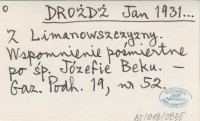 DROŻDŻ Jan 1931...
Z Limanowszczyzny.
Wspomnienie pośmiertne
po śp. Józefie Beku. —
Gaz. Podh. 19, nr 52.